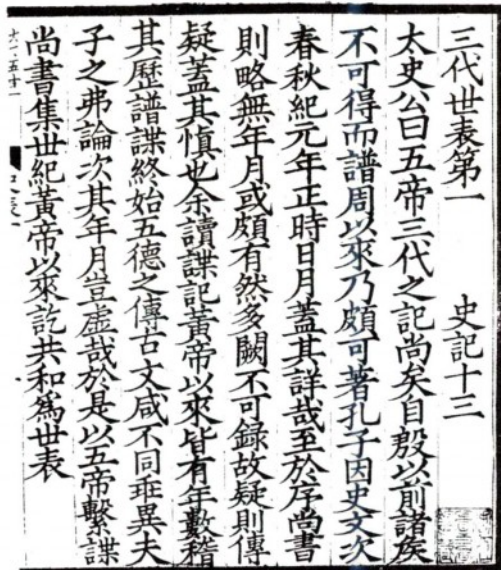 三代世表第一 史記十三
太史公曰五帝三代之記尚矣自殷以前諸侯
不可得而譜周以來乃頗可著孔子因史文次
春秋紀元年正時日月蓋其詳哉至於序尚書
則略無年月或頗有然多闕不可録故疑則傳
疑蓋其慎也余讀諜記黃帝以來皆有年數稽
其歷譜諜終始五德之傳古文咸不同乖異夫
子之弗論次其年月豈虛哉於是以五帝繫諜
尚書集世紀黃帝以來訖共和為世表